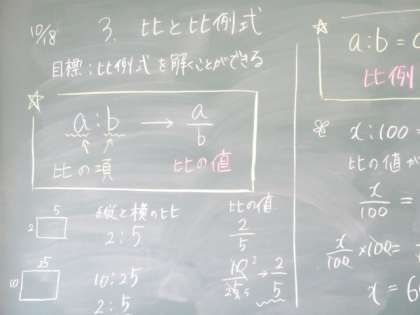 10/18
3. 比と比例式
目標:比例式を解くことができる
a:b → a/b
比の項 比の値
5
2
縦と横の比
2:5
比の値
2/5
25
10
10:25
2:5
10/25 2 5 → 2/5
a:b=
比例
x:100=
比の値が
x/100=
x/100×100=
x=6